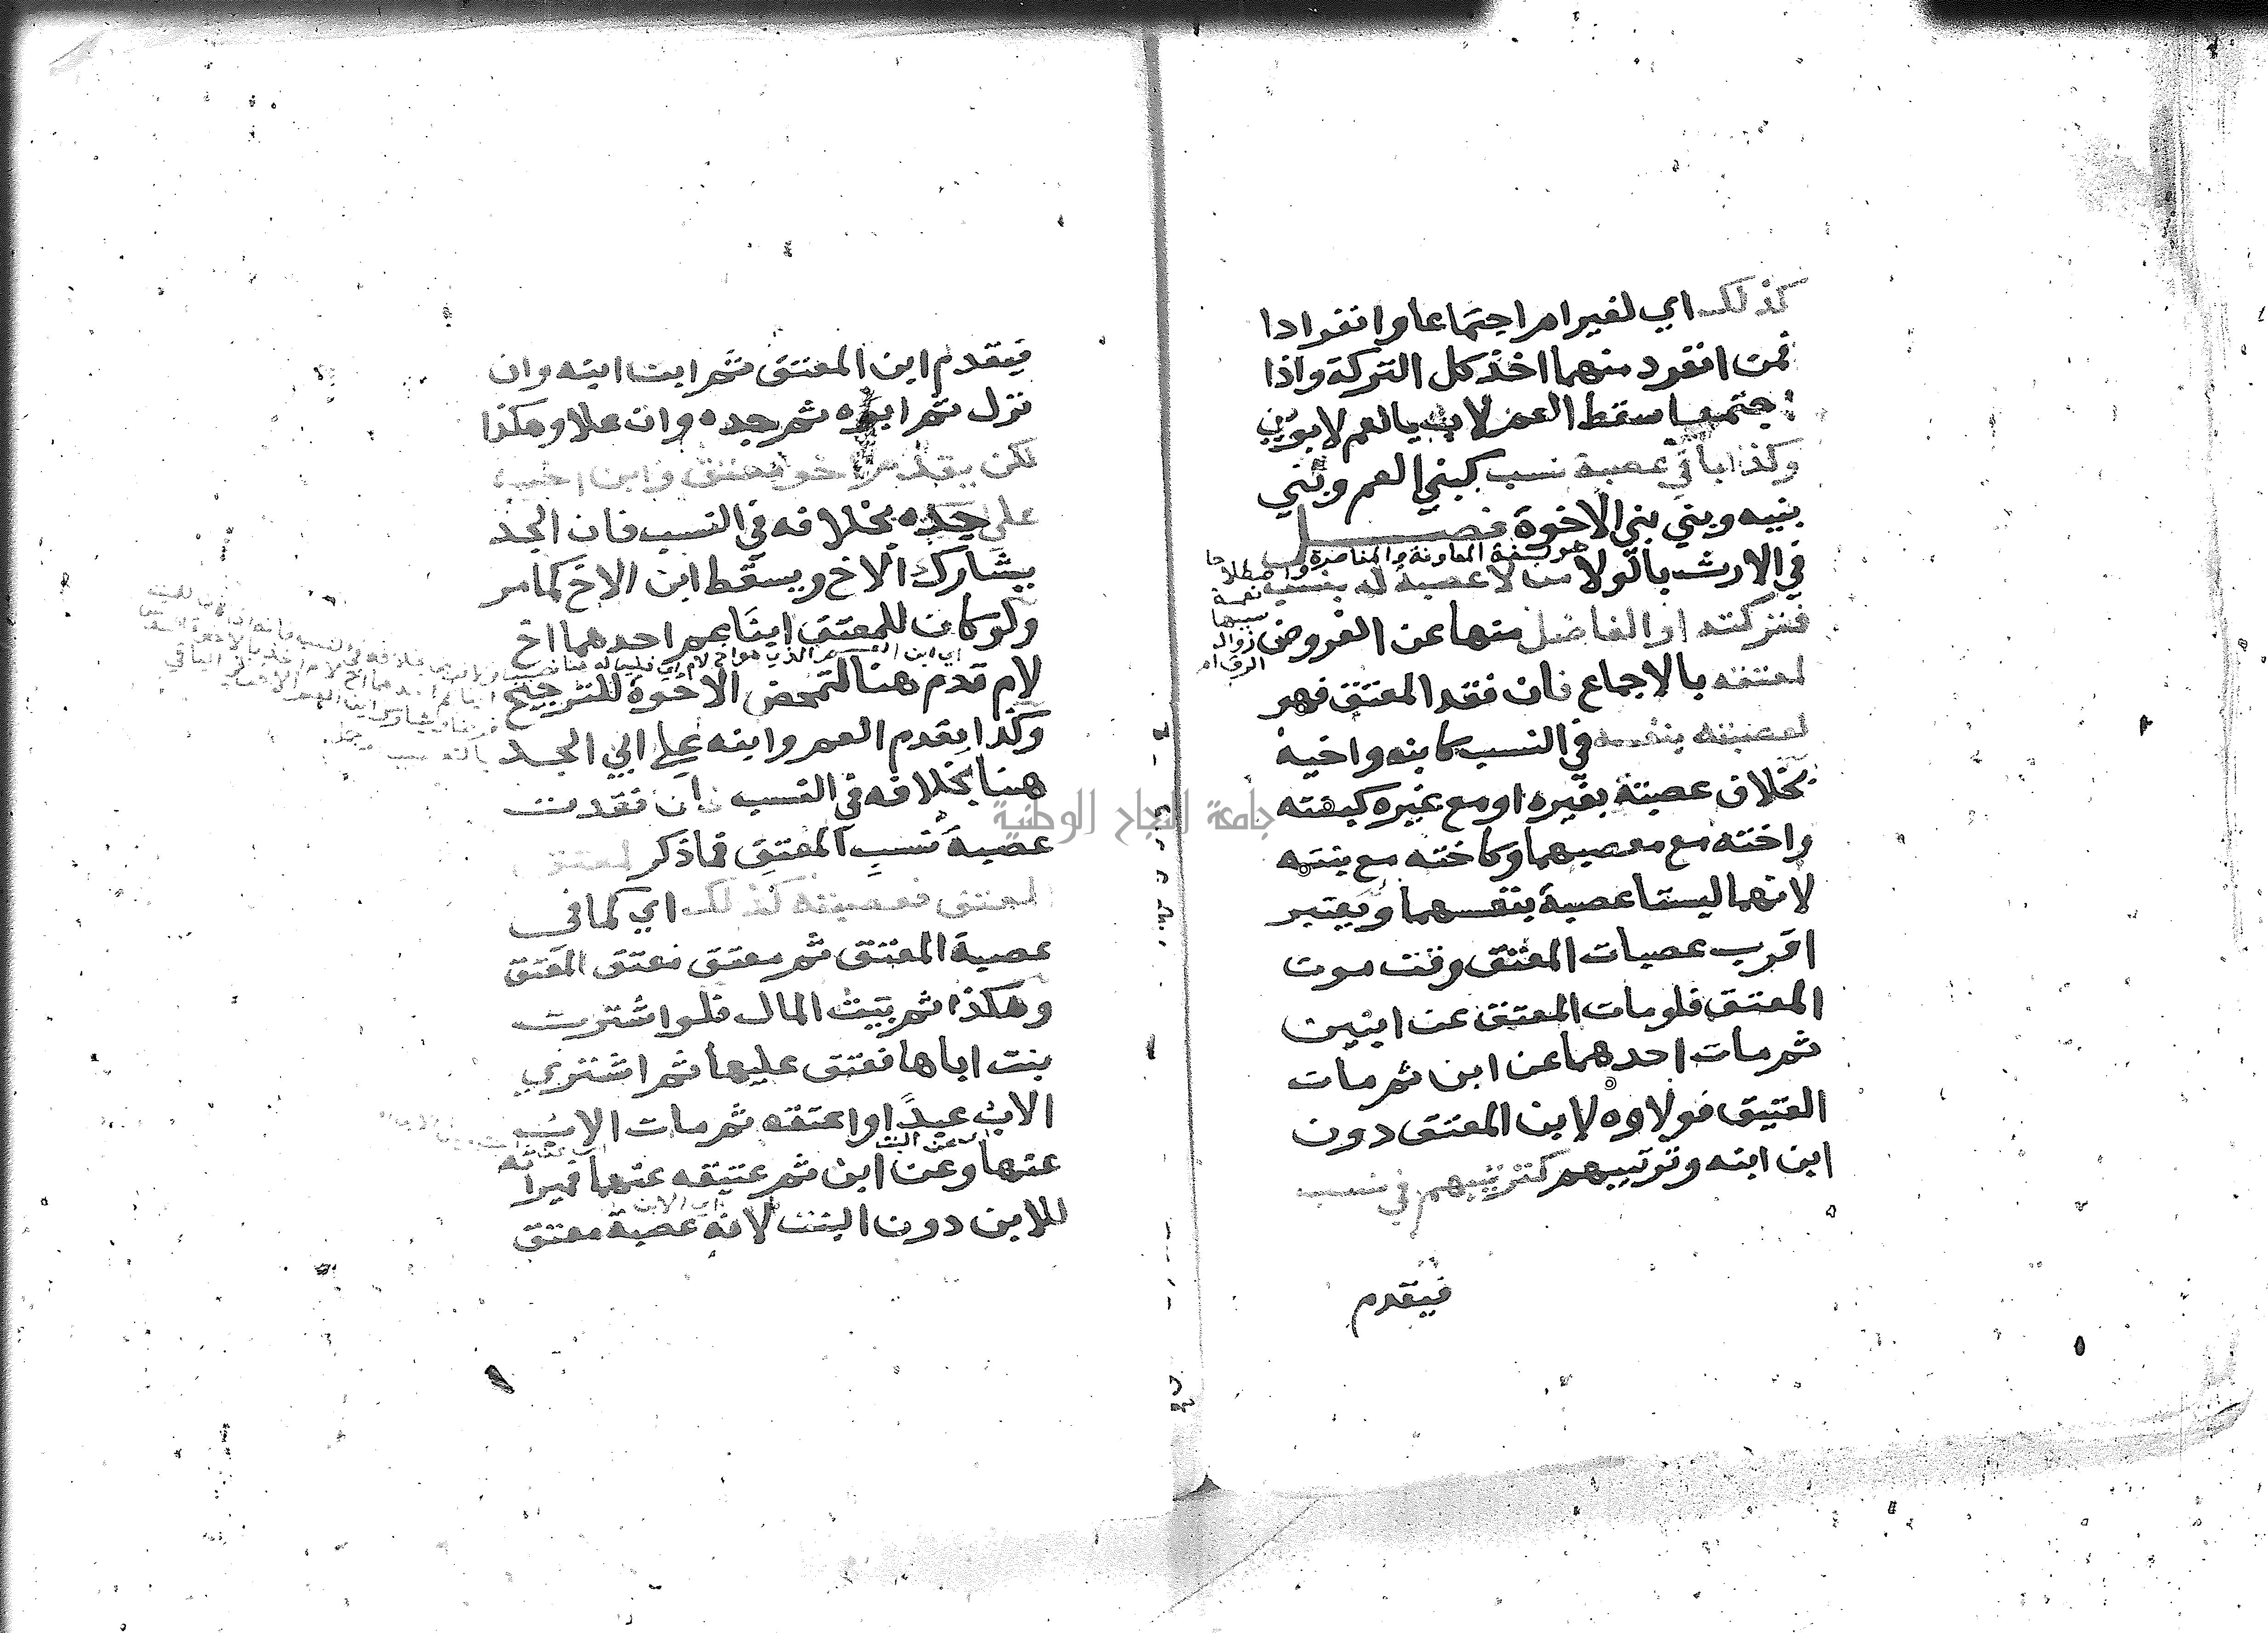 كذلك اي لغير ام اجتماعا وانفرادا
فمن انفرد منهما اخذ كل التركة واذا
اجتمعا سقط العم لاب بالعم لابوين
وكذا باقي عصبة نسب كبني العم وبني
بنيه وبني بني الاخوة فصل
هو لغة المعاونة والمناصرة واصطلاحا
في الارث بالولا من لا عصبة له بنسب
نعمة
سببها
فتركته او الفاضل منها عن الفروض
زوال
الرق اه
لمعتقه بالاجماع فان فقد المعتق فهو
لعصبته بنفسه في النسب كابنه واخيه
بخلاف عصبته بغيره او مع غيره كبنته
واخته مع معصبهما وكاخته مع بنته
لانهما ليستا عصبة بنفسهما ويعتبر
اقرب عصبات المعتق وقت موت
المعتق فلو مات المعتق عن ابنين
ثم مات احدهما عن ابن ثم مات
العتيق فولاوه لابن المعتق دون
ابن ابنه وترتيبهم كترتيبهم في نسب
فيقدم
فيقدم ابن المعتق ثم ابن ابنه وان
نزل ثم ابوه ثم جده وان علا وهكذا
لكن يقدم اخو معتق وابن اخيه
علي جده بخلافه في النسب فان الجد
يشارك الاخ ويسقط ابن الاخ كما مر
ولو كان للمعتق ابنا عم احدهما اخ
لام قدم هنا لتمحض الاخوة للترجيح
وكذا يقدم العم وابنه علي ابي الجد
هنا بخلافه في النسب فان فقدت
عصبة نسب المعتق فما ذكر لمعتق
المعتق فعصبته كذلك اي كما في
عصبة المعتق ثم معتق معتق المعتق
وهكذا ثم بيت المال فلو اشترت
بنت اباها فعتق عليها ثم اشتري
الاب عبدا واعتقه ثم مات الاب
عنها وعن ابن ثم عتيقه عنهما فميراثه
اي الابن
للابن دون البنت لانه عصبة معتق
جامعة النجاح الوطنية